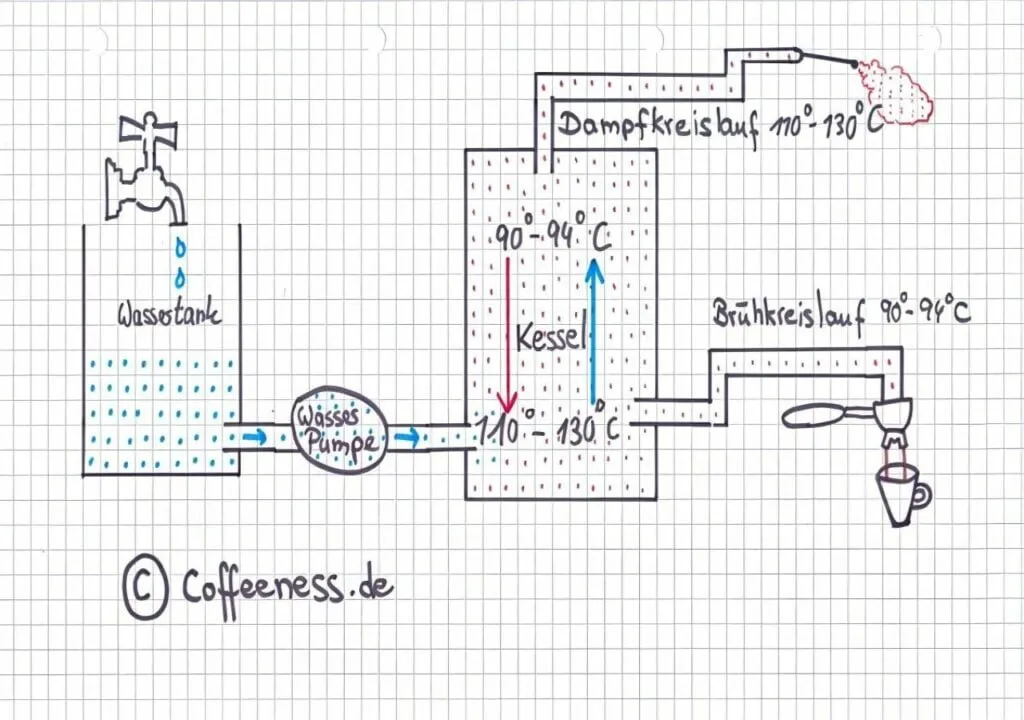 Dampfkreislauf 110°-130°C
90°-94°C
Wassertank
Kessel
Brühkreislauf 90°-94°C
Wasser
Pumpe
110°-130°C
© Coffeeness.de